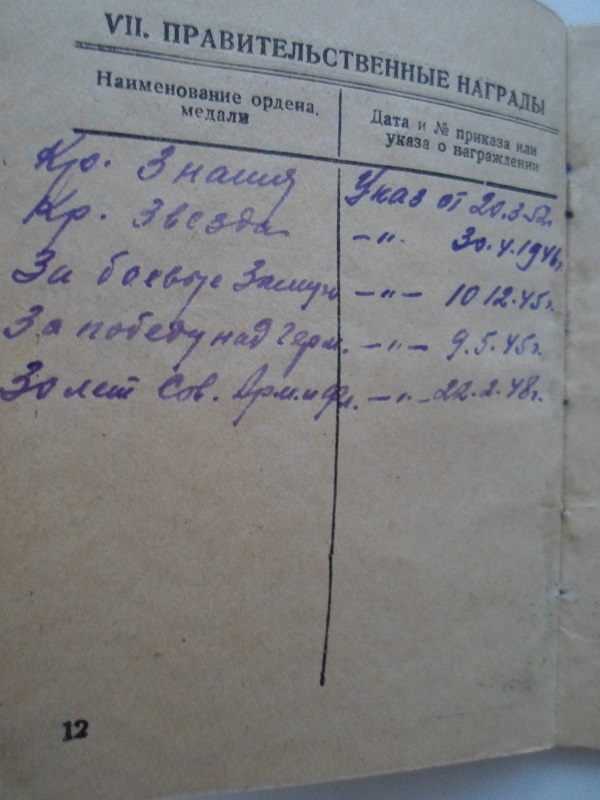 VII. ПРАВИТЕЛЬСТВЕННЫЕ НАГРАДЫ
Наименование ордена,
медали
Дата и № приказа или
указа о награждении
Кр. Знамя Указ от 20.3.52.
Кр. Звезда —"— 30.4.1946г.
За боевые Заслуги —"— 10 12.45г.
За победу над Герм. —"— 9.5.45г.
30 лет Сов. Арм. и Фл. —"— 22.2.48г.
12